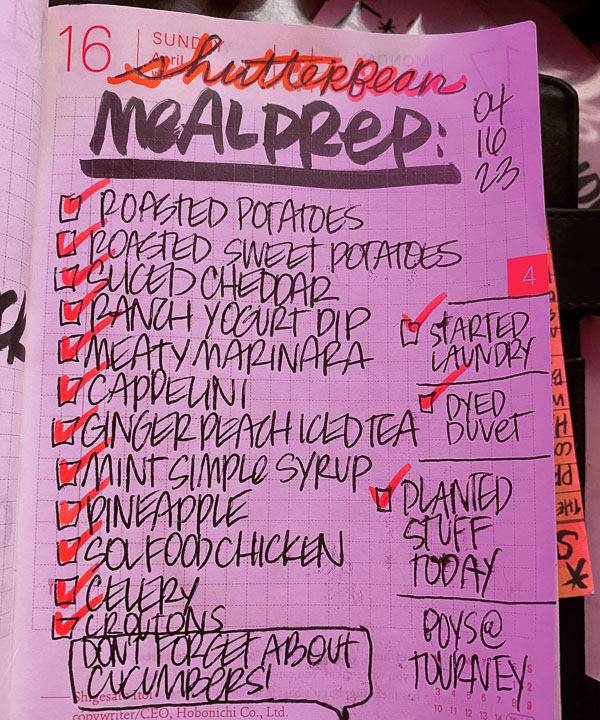 16
SUNDAY
April
shutterbean
MEAL PREP:
04
16
23
ROASTED POTATOES
ROASTED SWEET POTATOES
SLICED CHEDDAR
RANCH YOGURT DIP
MEATY MARINARA
CAPPELINI
GINGER PEACH ICED TEA
MINT SIMPLE SYRUP
PINEAPPLE
SOL FOOD CHICKEN
CELERY
CROUTONS
DON'T FORGET ABOUT
CUCUMBERS!
4
STARTED
LAUNDRY
DYED
DUVET
PLANTED
STUFF
TODAY
BOYS@
TOURNEY
Shigesato Itoi
copywriter/CEO, Hobonichi Co., Ltd.
MONDAY
17
THE